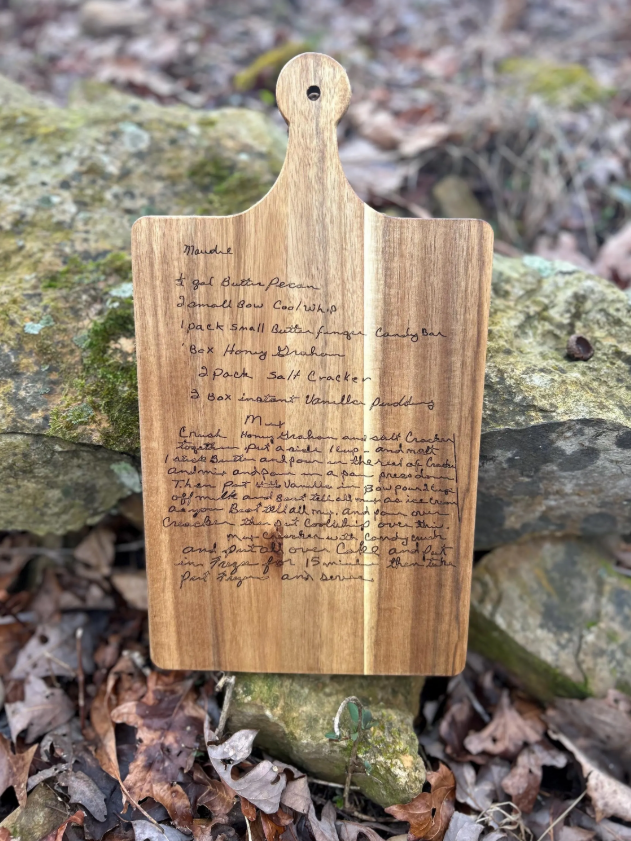 Maudie
½ gal Butter Pecan
2 small Bow Cool Whip
1 pack small Butterfinger Candy Bar
1 Box Honey Graham
2 Pack Salt Cracker
2 Box instant Vanilla Pudding
Mix
Crush Honey Graham and salt Cracker
together put aside 1 cup - and melt
1 stick Butter and pour in the rest of Cracker
and mix and pour in a pan press down
Then Put Vanilla in Bow pour 2 cups
of milk and Beat tell all mix as ice cream
as you Beat tell all mix, and pour over
Cracker then put Coolwhip over this,
mix Cracker with Candy crush
and put all over Cake and Put
in Frige for 15 minute then take
Put and serve